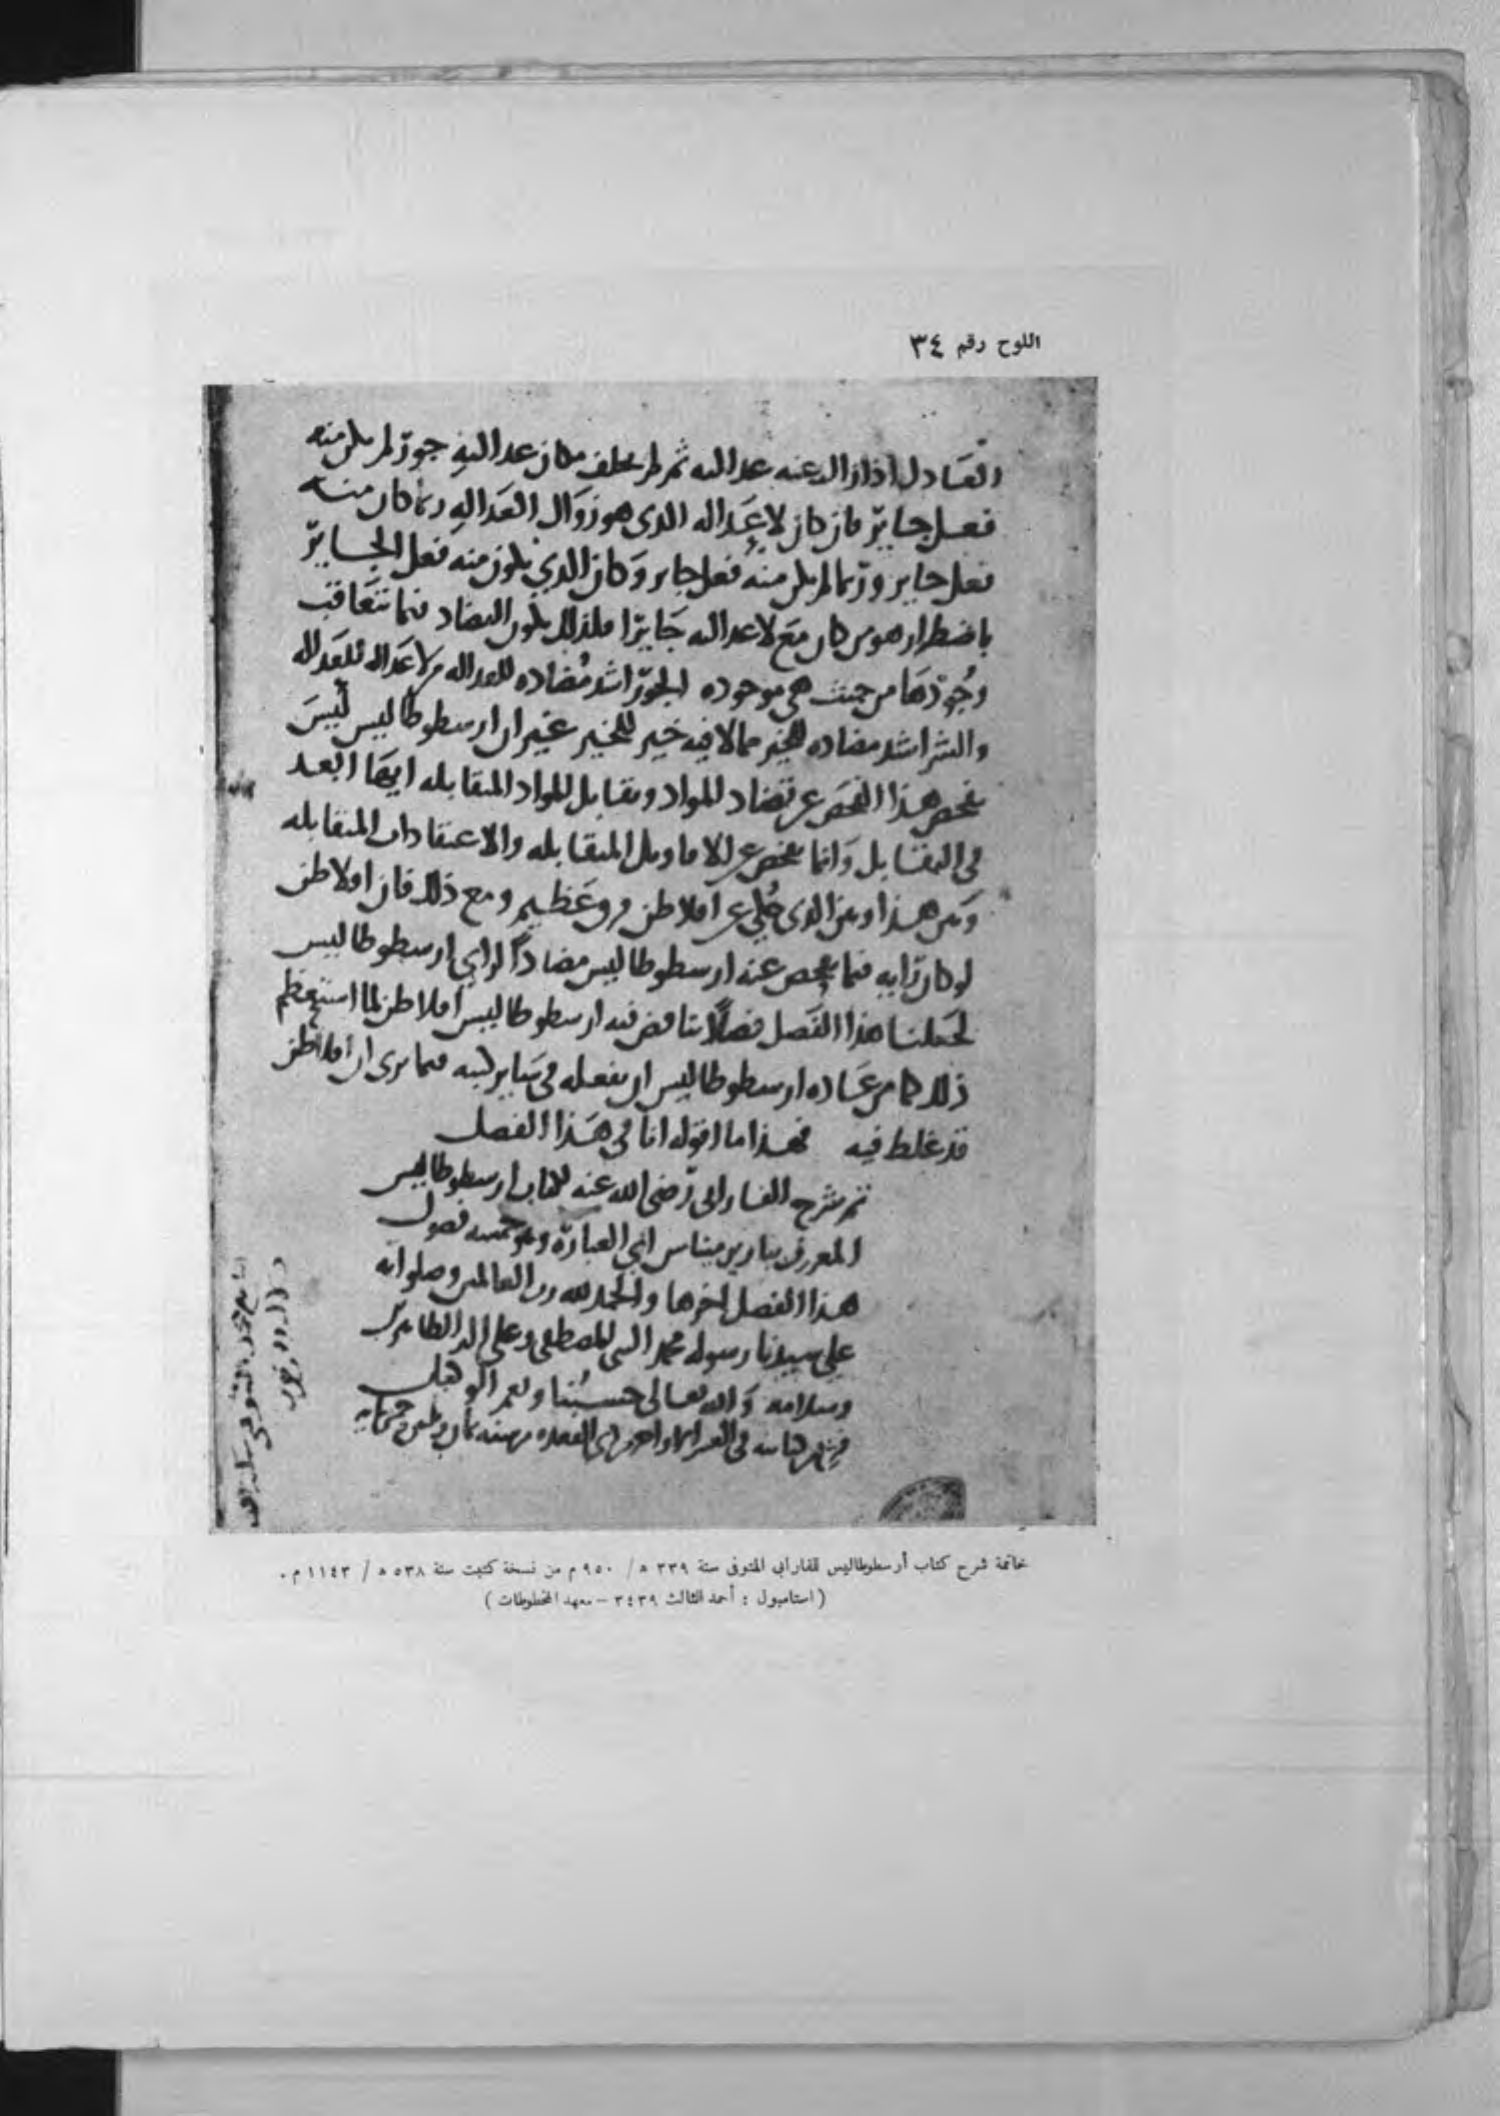 اللوح رقم ٣٤
العادل اذا زالت عنه عدالته ثم لم يخلف مكان عدالته جور لم يكن منه
فعل جاير فان كان لا عداله الذي هو زوال العداله ربما كان منه
فعل جاير وربما لم يكن منه فعل جاير وكان الذي يكون منه فعل الجاير
باضطرار هو من كان مع لا عدالته جايرا فلذلك يكون التضاد فيما تتعاقب
وجودها من حيث هي موجوده الجور اشد مضاده للعداله من لا عداله للعداله
والشر اشد مضاده للخير مما لا فيه خير للخير غير ان ارسطوطاليس ليس
يفحص هذا الفحص عن تضاد المواد وتقابل المواد المتقابله ايها ابعد
في التقابل وانما يفحص عن الاقاويل المتقابله والاعتقادات المتقابله
وبين هذا وبين الذي حكي عن افلاطن فرق عظيم ومع ذلك فان افلاطن
لو كان رايه فيما يفحص عنه ارسطوطاليس مضادا لراي ارسطوطاليس
لجعلنا هذا الفصل فصلا يناقض فيه ارسطوطاليس افلاطن لما استعظم
ذلك كما من عاده ارسطوطاليس ان يفعله في ساير كتبه فيما يرى ان افلاطن
قد غلط فيه فهذا ما اقوله انا في هذا الفصل
تم شرح الفارابي رضي الله عنه لكتاب ارسطوطاليس
المعروف بباريرمينياس اي العبارة وهو خمسه فصول
هذا الفصل اخرها والحمد لله رب العالمين وصلواته
على سيدنا رسوله محمد النبي المصطفى وعلى اله الطاهرين
وسلامه والله تعالى حسبنا ونعم الوكيل
في العشر ذي القعده سنه ثمان وثلثين وخمسمايه
خاتمة شرح كتاب أرسطوطاليس للفارابي المتوفى سنة ٣٣٩ هـ/ ٩٥٠ م من نسخة كتبت سنة ٥٣٨ هـ / ١١٤٣ م .
( استامبول : أحمد الثالث ٣٤٣٩ – معهد المخطوطات )